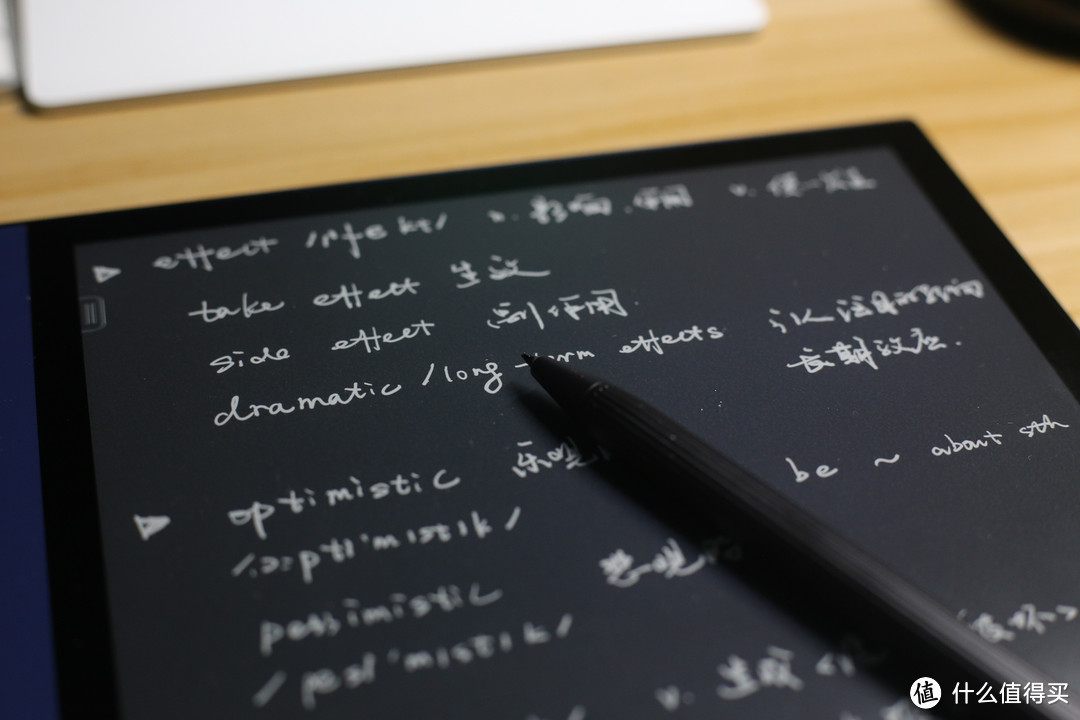 effect /ɪ'fekt/ n. 影响.作用 v. 使…发生
take effect 生效
side effect 副作用.
dramatic /long-term effects 引人注目的影响
长期效应.
optimistic 乐观 be ~ about sth
pessimistic 悲观的
v. 生成
值 什么值得买